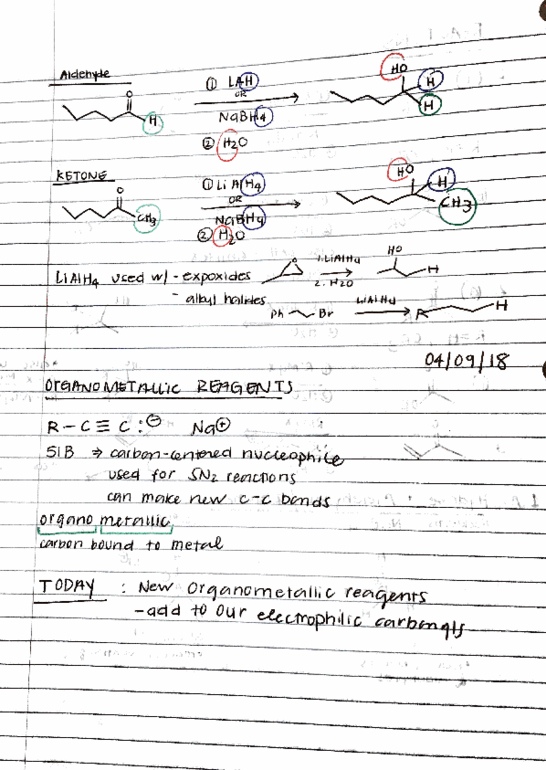 Aldehyde
O
H
① LAH
OR
NaBH4
② H2O
HO
H
H
KETONE
O
CH3
① LiAlH4
OR
NaBH4
② H2O
HO
H
CH3
LiAlH4 used w/ - expoxides
O
1. LiAlH4
2. H2O
HO
H
- alkyl halides
Ph
Br
LiAlH4
R
H
04/09/18
ORGANOMETALLIC REAGENTS
R-C≡C:⊖ Na⊕
51B ⇒ carbon-centered nucleophile
used for SN2 reactions
can make new c-c bonds
organo metallic
carbon bound to metal
TODAY : New Organometallic reagents
- add to our electrophilic carbonyls